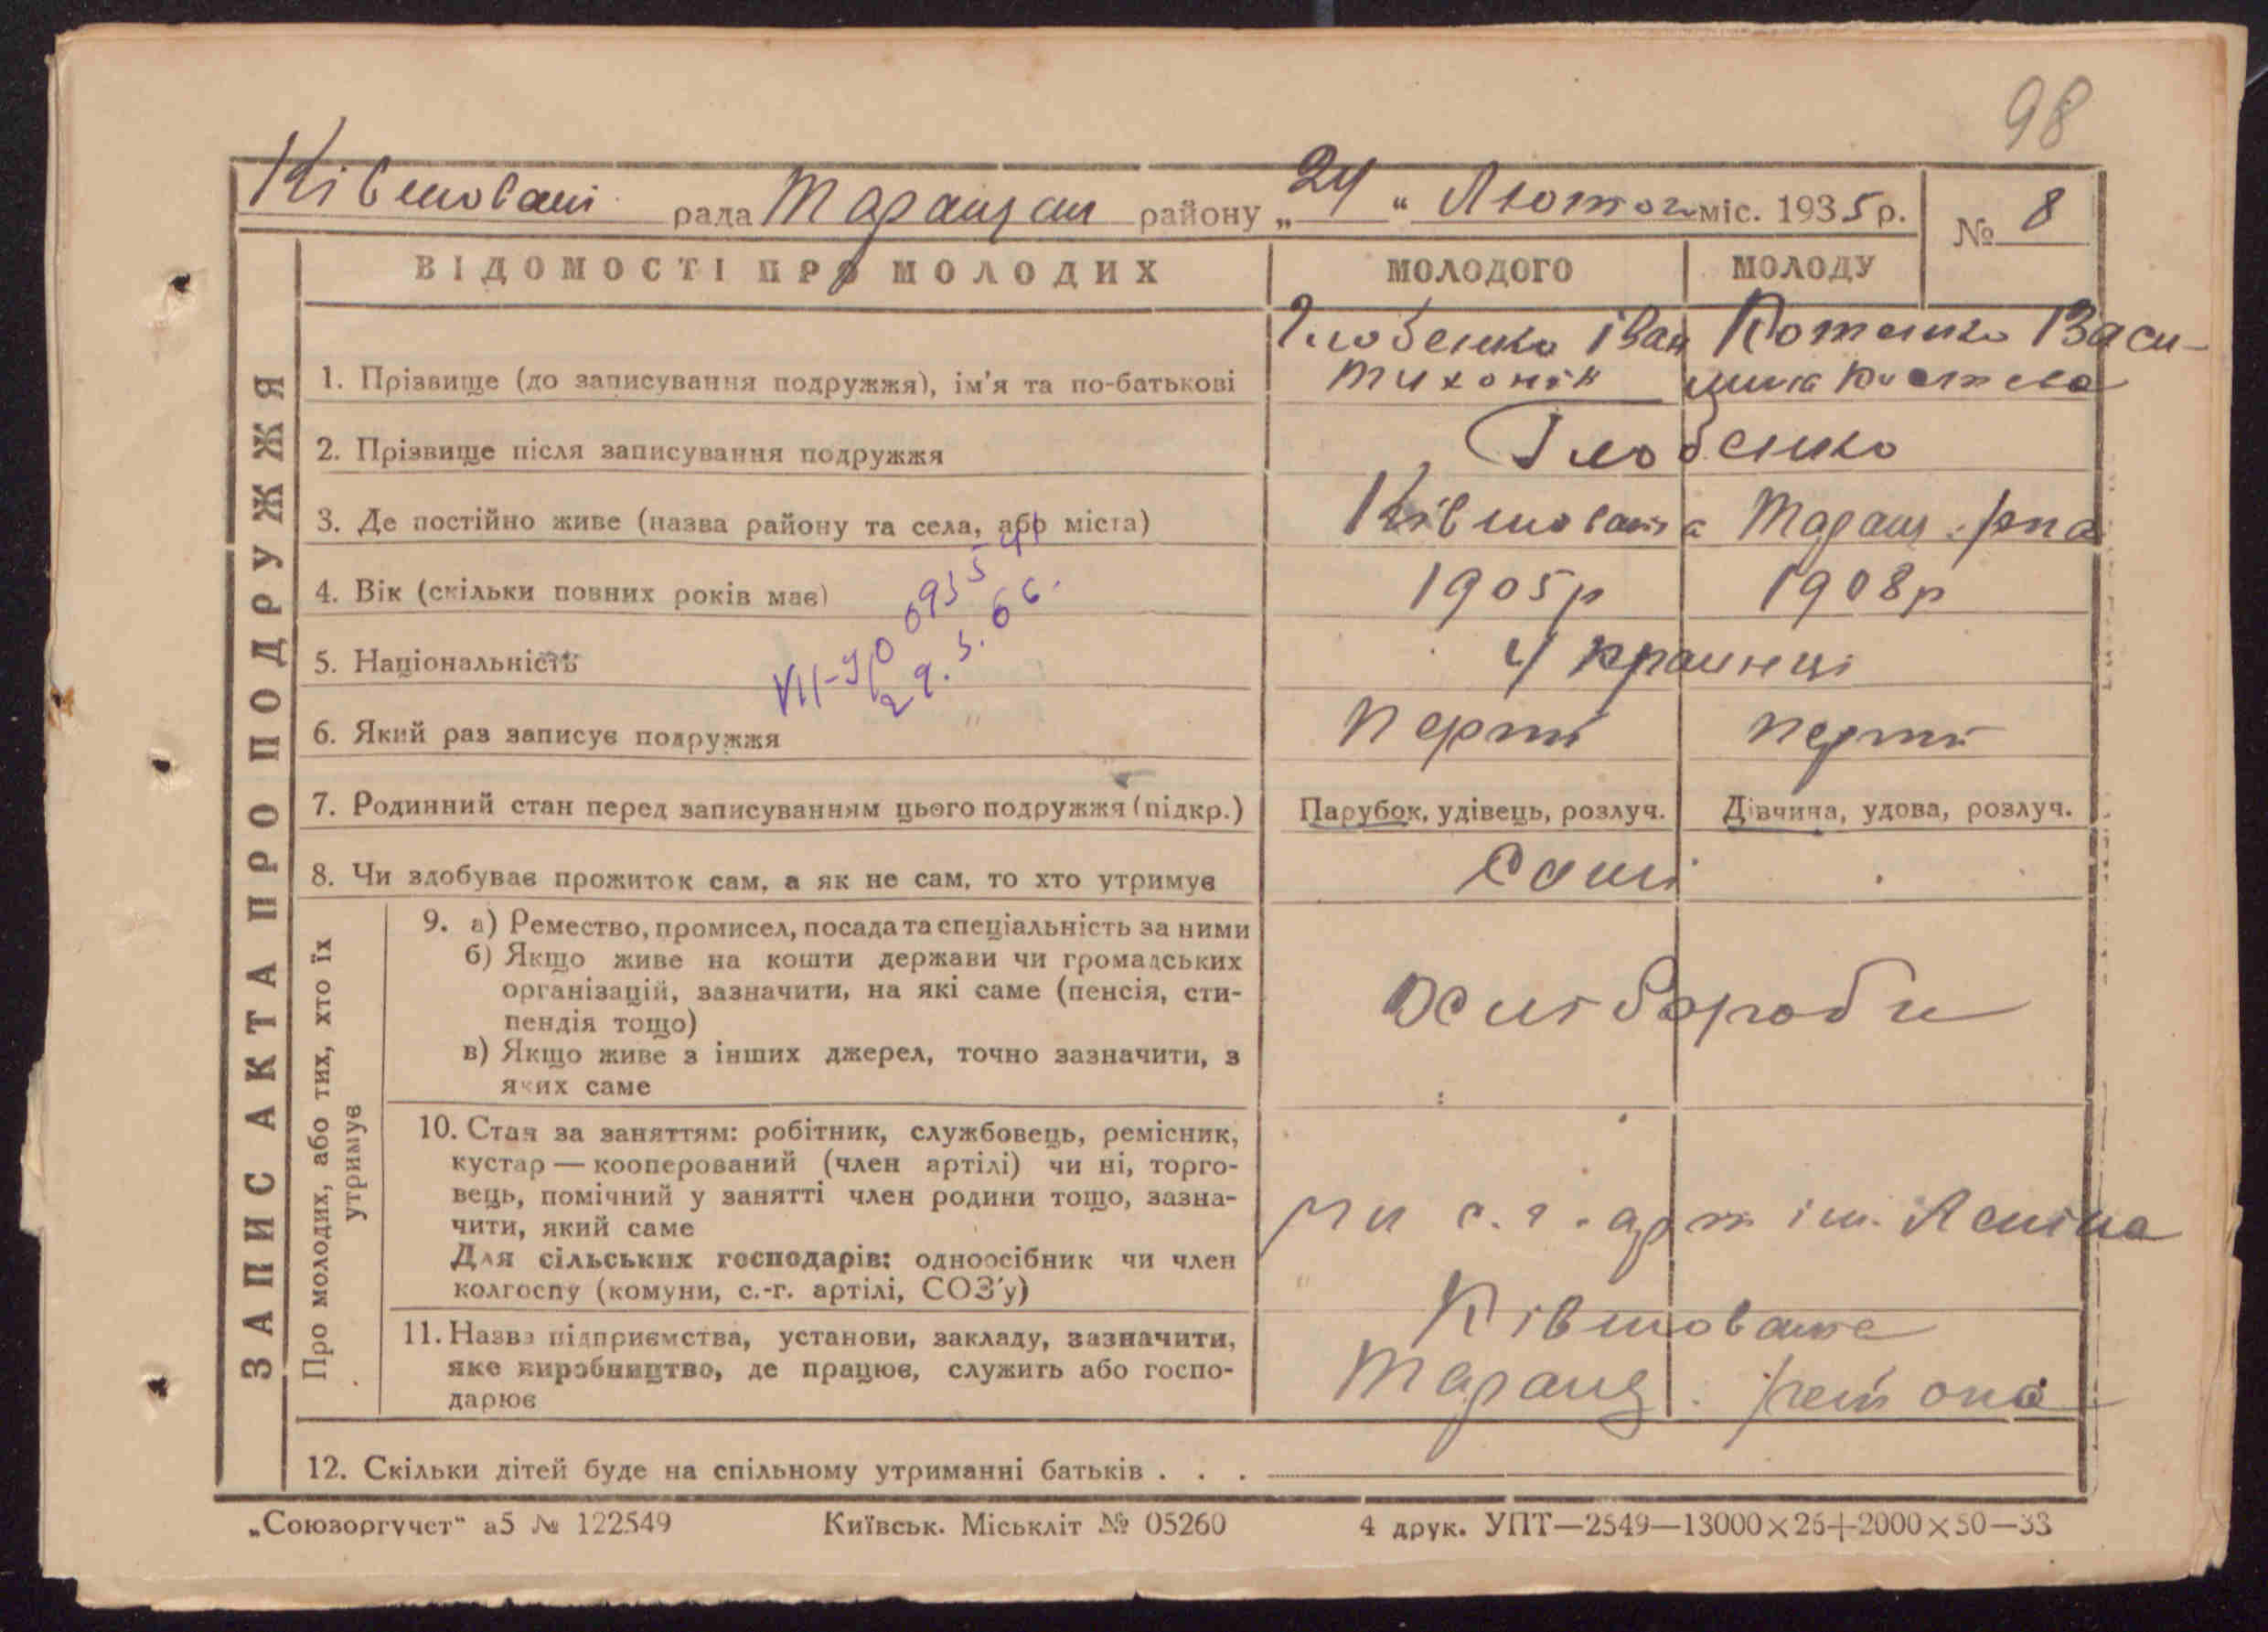 98
Ківшовані рада Таращан району „24“ Лютого міс. 1935 р. № 8
ЗАПИС АКТА ПРО ПОДРУЖЖЯ
ВІДОМОСТІ ПРО МОЛОДИХ МОЛОДОГО МОЛОДУ
1. Прізвище (до записування подружжя), ім'я та по-батькові
Глобенко Іван Тихонів
Котенко Васи-
2. Прізвище після записування подружжя Глобенко
3. Де постійно живе (назва району та села, або міста) Ківшовата Таращ. р-на
4. Вік (скільки повних років має) 1905р 1908р
5. Національність Українці
VII-ЯЮ 093541
29.3.66.
6. Який раз записує подружжя перший перший
7. Родинний стан перед записуванням цього подружжя (підкр.) Парубок, удівець, розлуч. Дівчина, удова, розлуч.
8. Чи здобуває прожиток сам, а як не сам, то хто утримує Самі
Про молодих, або тих, хто їх
утримує
9. а) Ремество, промисел, посада та спеціальність за ними
б) Якщо живе на кошти держави чи громадських
організацій, зазначити, на які саме (пенсія, сти-
пендія тощо)
в) Якщо живе з інших джерел, точно зазначити, з
яких саме
Хлібороби
10. Стан за заняттям: робітник, службовець, ремісник,
кустар — кооперований (член артілі) чи ні, торго-
вець, помічний у занятті член родини тощо, зазна-
чити, який саме
Для сільських господарів: одноосібник чи член
колгоспу (комуни, с.-г. артілі, СОЗ'у)
чл с.г. арт ім. Леніна
11. Назва підприємства, установи, закладу, зазначити,
яке виробництво, де працює, служить або госпо-
дарює
Ківшовате
Таращ. району
12. Скільки дітей буде на спільному утриманні батьків . . .
„Союзоргучет“ а5 № 122549 Київськ. Міськліт № 05260 4 друк. УПТ—2549—13000×25+2000×50—33